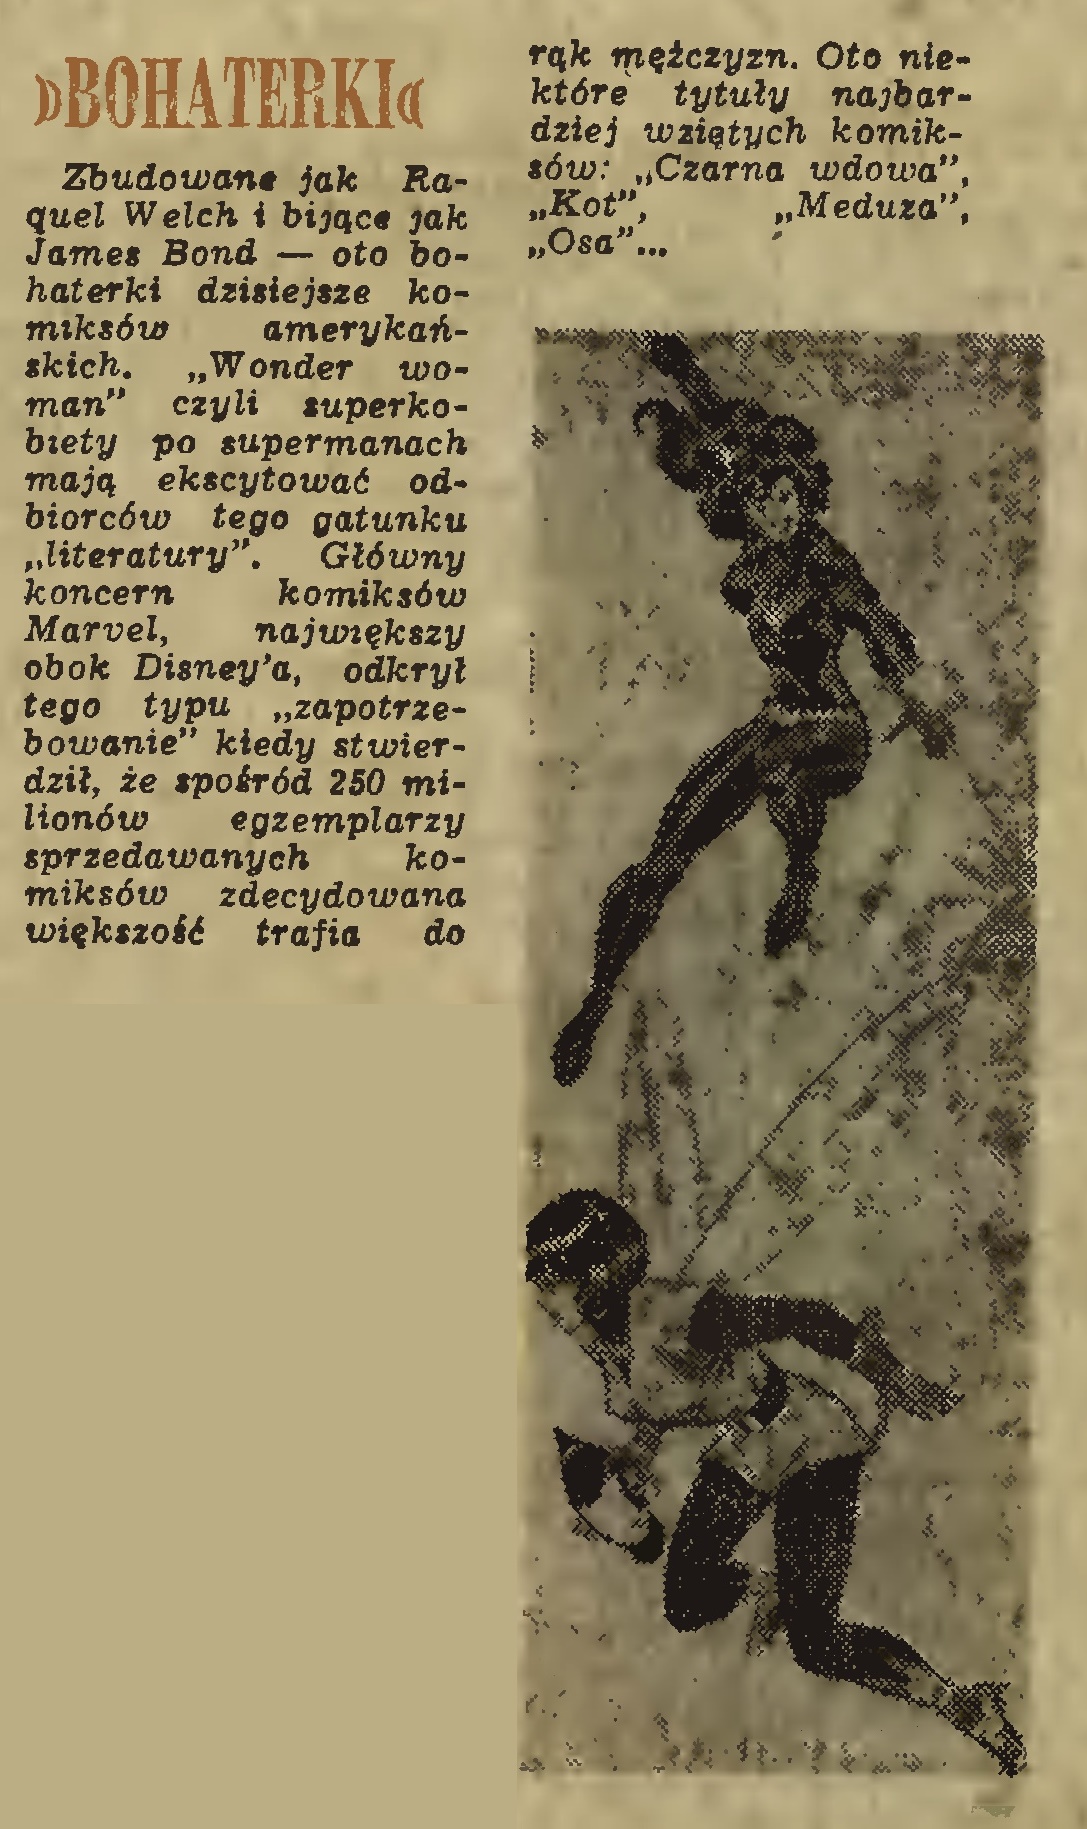 »BOHATERKI«
Zbudowane jak Ra-
quel Welch i bijące jak
James Bond — oto bo-
haterki dzisiejsze ko-
miksów amerykań-
skich. „Wonder wo-
man” czyli superko-
biety po supermanach
mają ekscytować od-
biorców tego gatunku
„literatury”. Główny
koncern komiksów
Marvel, największy
obok Disney’a, odkrył
tego typu „zapotrze-
bowanie” kiedy stwier-
dził, że spośród 250 mi-
lionów egzemplarzy
sprzedawanych ko-
miksów zdecydowana
większość trafia do
rąk mężczyzn. Oto nie-
które tytuły najbar-
dziej wziętych komik-
sów: „Czarna wdowa”,
„Kot”, „Meduza”,
„Osa”...